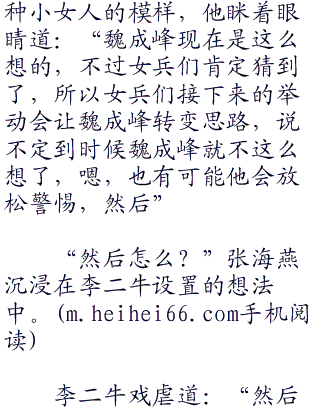 种小女人的模样，他眯着眼
睛道：“魏成峰现在是这么
想的，不过女兵们肯定猜到
了，所以女兵们接下来的举
动会让魏成峰转变思路，说
不定到时候魏成峰就不这么
想了，嗯，也有可能他会放
松警惕，然后”
“然后怎么？”张海燕
沉浸在李二牛设置的想法
中。(m.heihei66.com手机阅
读)
李二牛戏虐道：“然后